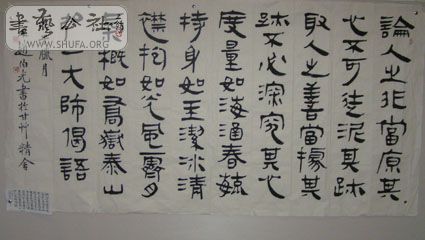 論人之非當原其
心不可徒泥其跡
取人之善當據其
跡不必深究其心
度量如海涵春毓
持身如玉潔冰清
襟抱如光風霽月
概如喬嶽泰山
一大師偈語
臘月
伯光書於甘州精舍
書藝公社
WWW.SHUFA.ORG